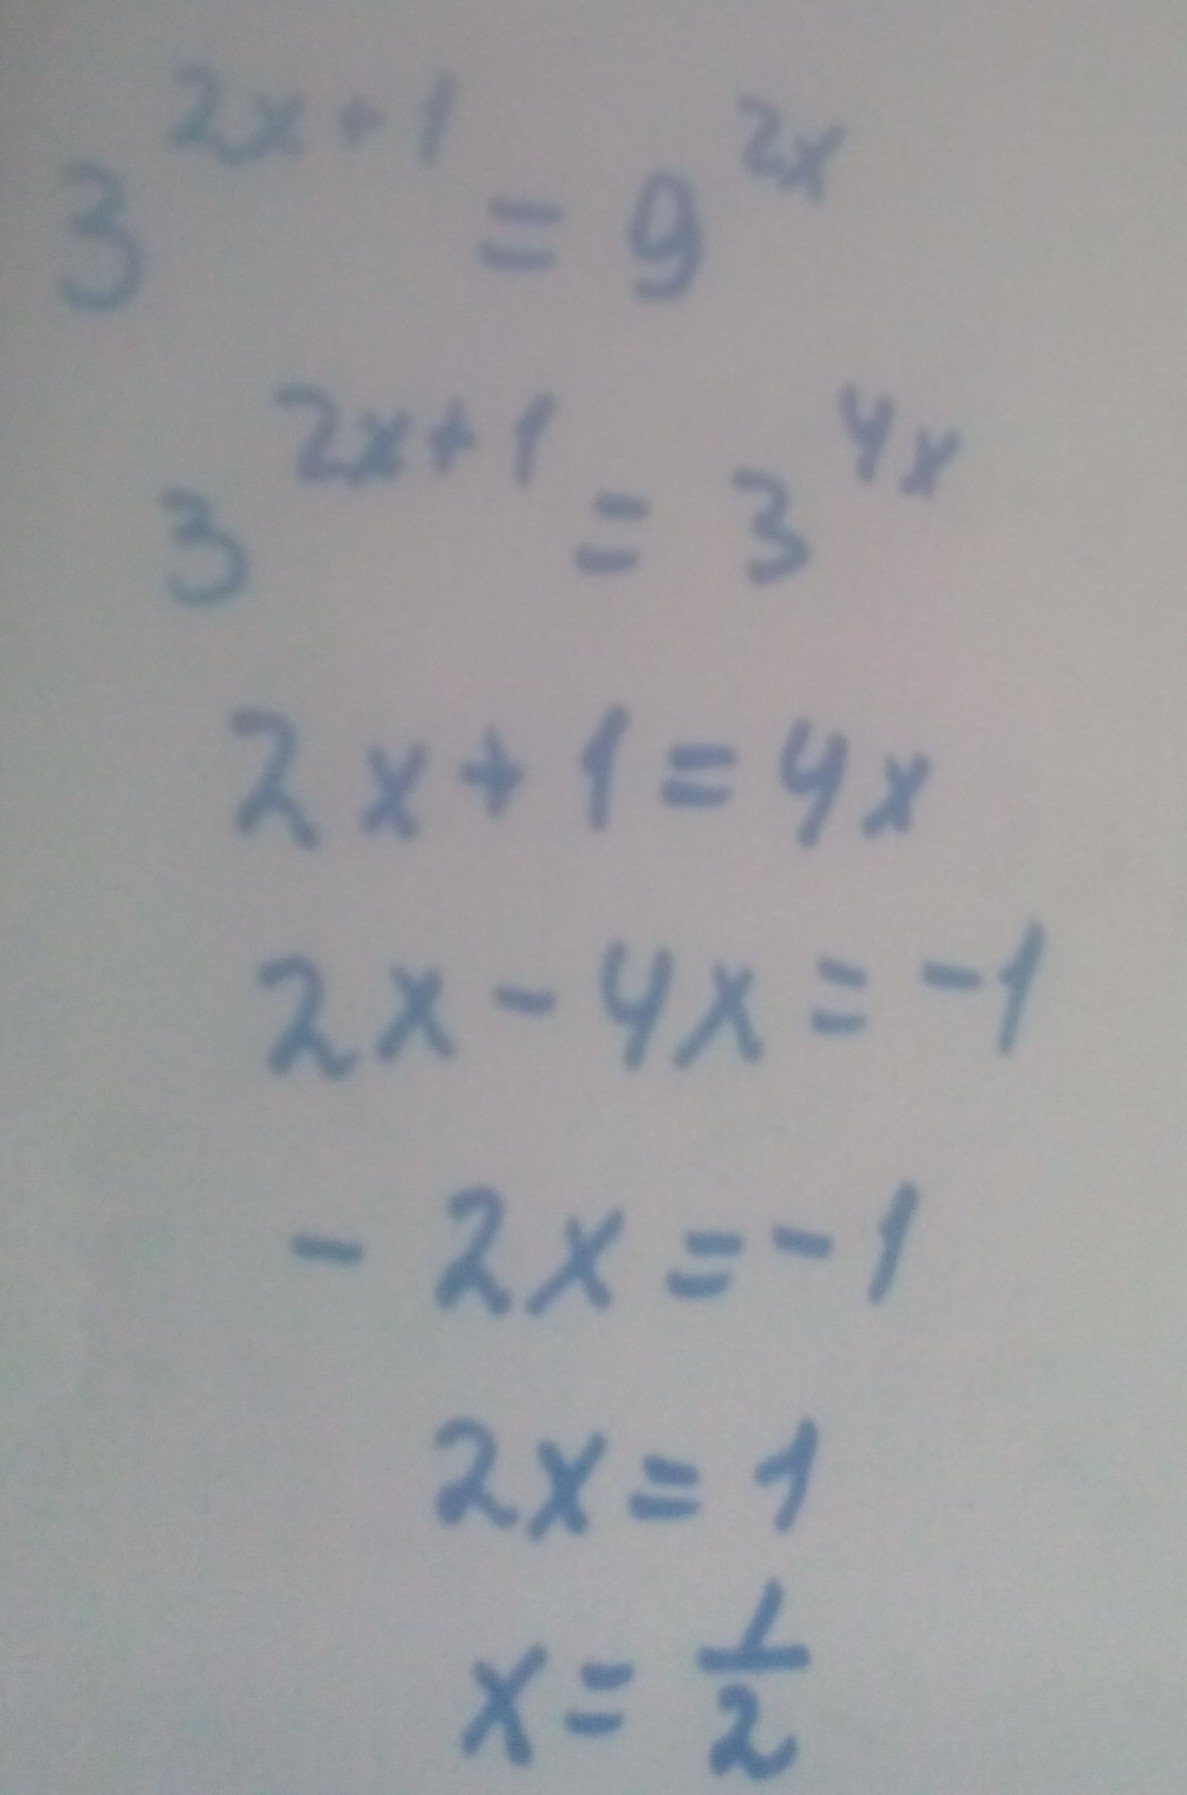 3^{2x+1} = 9^{2x}
3^{2x+1} = 3^{4x}
2x+1=4x
2x-4x=-1
-2x=-1
2x=1
x=\frac{1}{2}